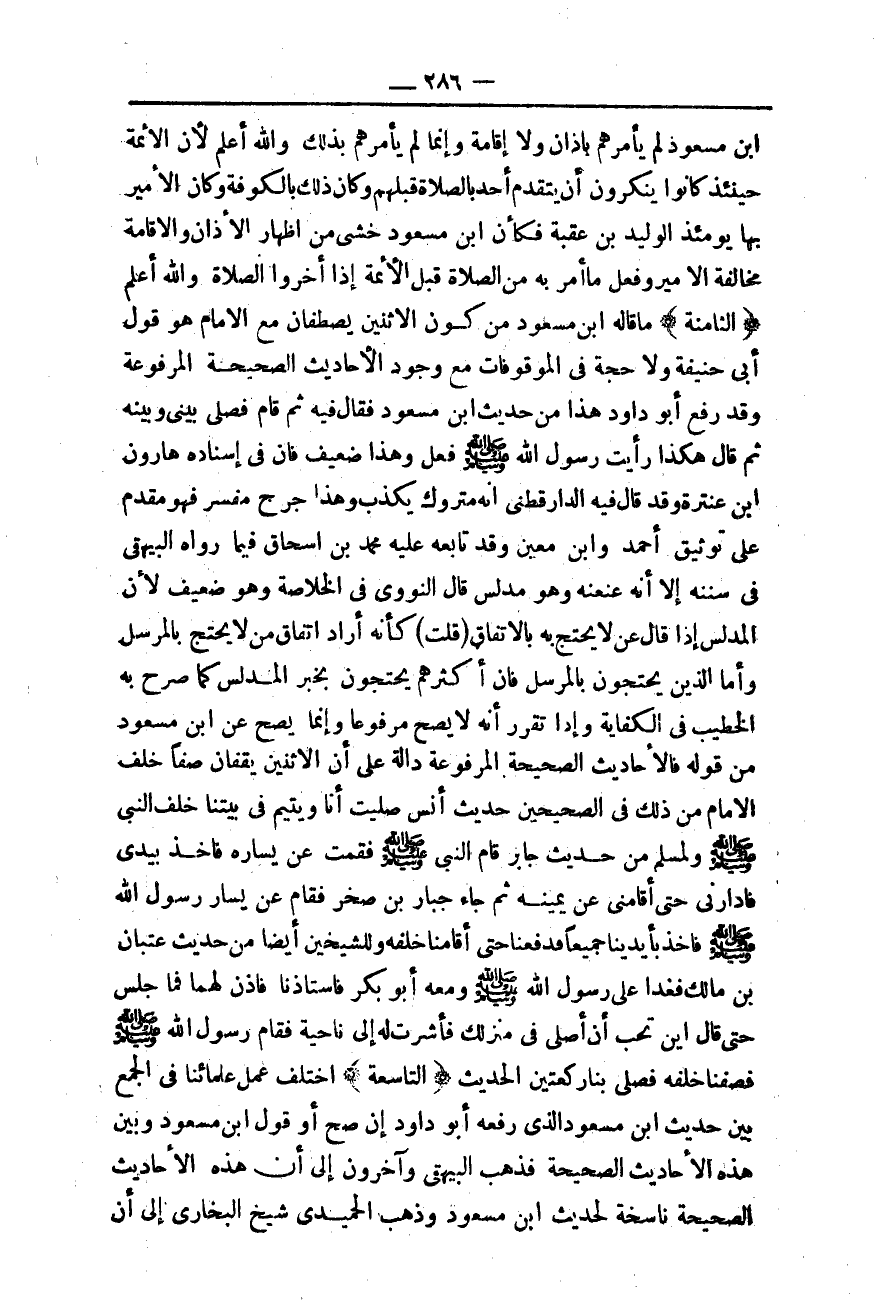 — ٢٨٦ —
ابن مسعود لم يأمرهم باذان ولا إقامة وإنما لم يأمرهم بذلك والله أعلم لأن الأئمة
حينئذ كانوا ينكرون أن يتقدم أحد بالصلاة قبلهم وكان ذلك بالكوفة وكان الأمير
بها يومئذ الوليد بن عقبة فكأن ابن مسعود خشى من اظهار الأذان والاقامة
مخالفة الامير وفعل ماأمر به من الصلاة قبل الأئمة إذا أخروا الصلاة والله أعلم
﴿ الثامنة ﴾ ماقاله ابن مسعود من كون الاثنين يصطفان مع الامام هو قول
أبى حنيفة ولا حجة فى الموقوفات مع وجود الأحاديث الصحيحة المرفوعة
وقد رفع أبو داود هذا من حديث ابن مسعود فقال فيه ثم قام فصلى بينى وبينه
ثم قال هكذا رأيت رسول الله ﷺ فعل وهذا ضعيف فان فى إسناده هارون
ابن عنترة وقد قال فيه الدارقطنى انه متروك يكذب وهذا جرح مفسر فهو مقدم
على توثيق أحمد وابن معين وقد تابعه عليه محمد بن اسحاق فيما رواه البيهقى
فى سننه إلا أنه عنعنه وهو مدلس قال النووى فى الخلاصة وهو ضعيف لأن
المدلس إذا قال عن لا يحتج به بالاتفاق (قلت) كأنه أراد اتفاق من لا يحتج بالمرسل
وأما الذين يحتجون بالمرسل فان أكثرهم يحتجون بخبر المدلس كما صرح به
الخطيب فى الكفاية وإدا تقرر أنه لا يصح مرفوعا وإنما يصح عن ابن مسعود
من قوله فالأحاديث الصحيحة المرفوعة دالة على أن الاثنين يقفان صفاً خلف
الامام من ذلك فى الصحيحين حديث أنس صليت أنا ويتيم فى بيتنا خلف النبي
ﷺ ولمسلم من حديث جابر قام النبى ﷺ فقمت عن يساره فاخذ بيدى
فادارنى حتى أقامنى عن يمينه ثم جاء جبار بن صخر فقام عن يسار رسول الله
ﷺ فاخذ بأيدينا جميعاً فدفعنا حتى أقامنا خلفه وللشيخين أيضا من حديث عتبان
بن مالك فغدا على رسول الله ﷺ ومعه أبو بكر فاستاذنا فاذن لهما فما جلس
حتى قال اين تحب أن أصلى فى منزلك فأشرت له إلى ناحية فقام رسول الله ﷺ
فصفنا خلفه فصلى بنا ركعتين الحديث ﴿ التاسعة ﴾ اختلف عمل علمائنا فى الجمع
بين حديث ابن مسعود الذى رفعه أبو داود إن صح أو قول ابن مسعود وبين
هذه الأحاديث الصحيحة فذهب البيهقى وآخرون إلى أن هذه الأحاديث
الصحيحة ناسخة لحديث ابن مسعود وذهب الحميدى شيخ البخارى إلى أن